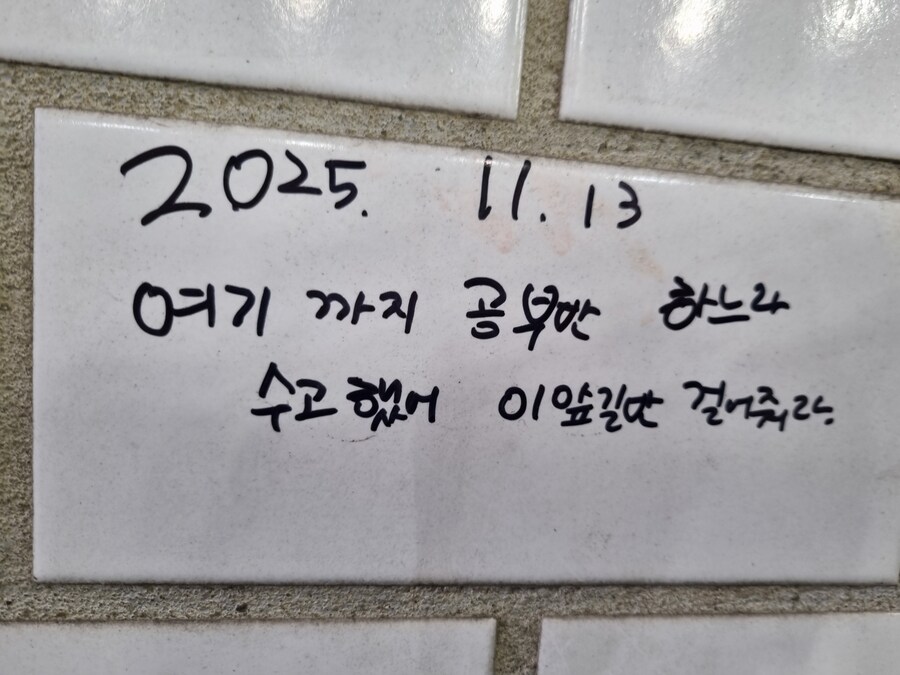 2025. 11. 13
여기 까지 공부만 하느라
수고했어 이앞길만 걸어줘라.